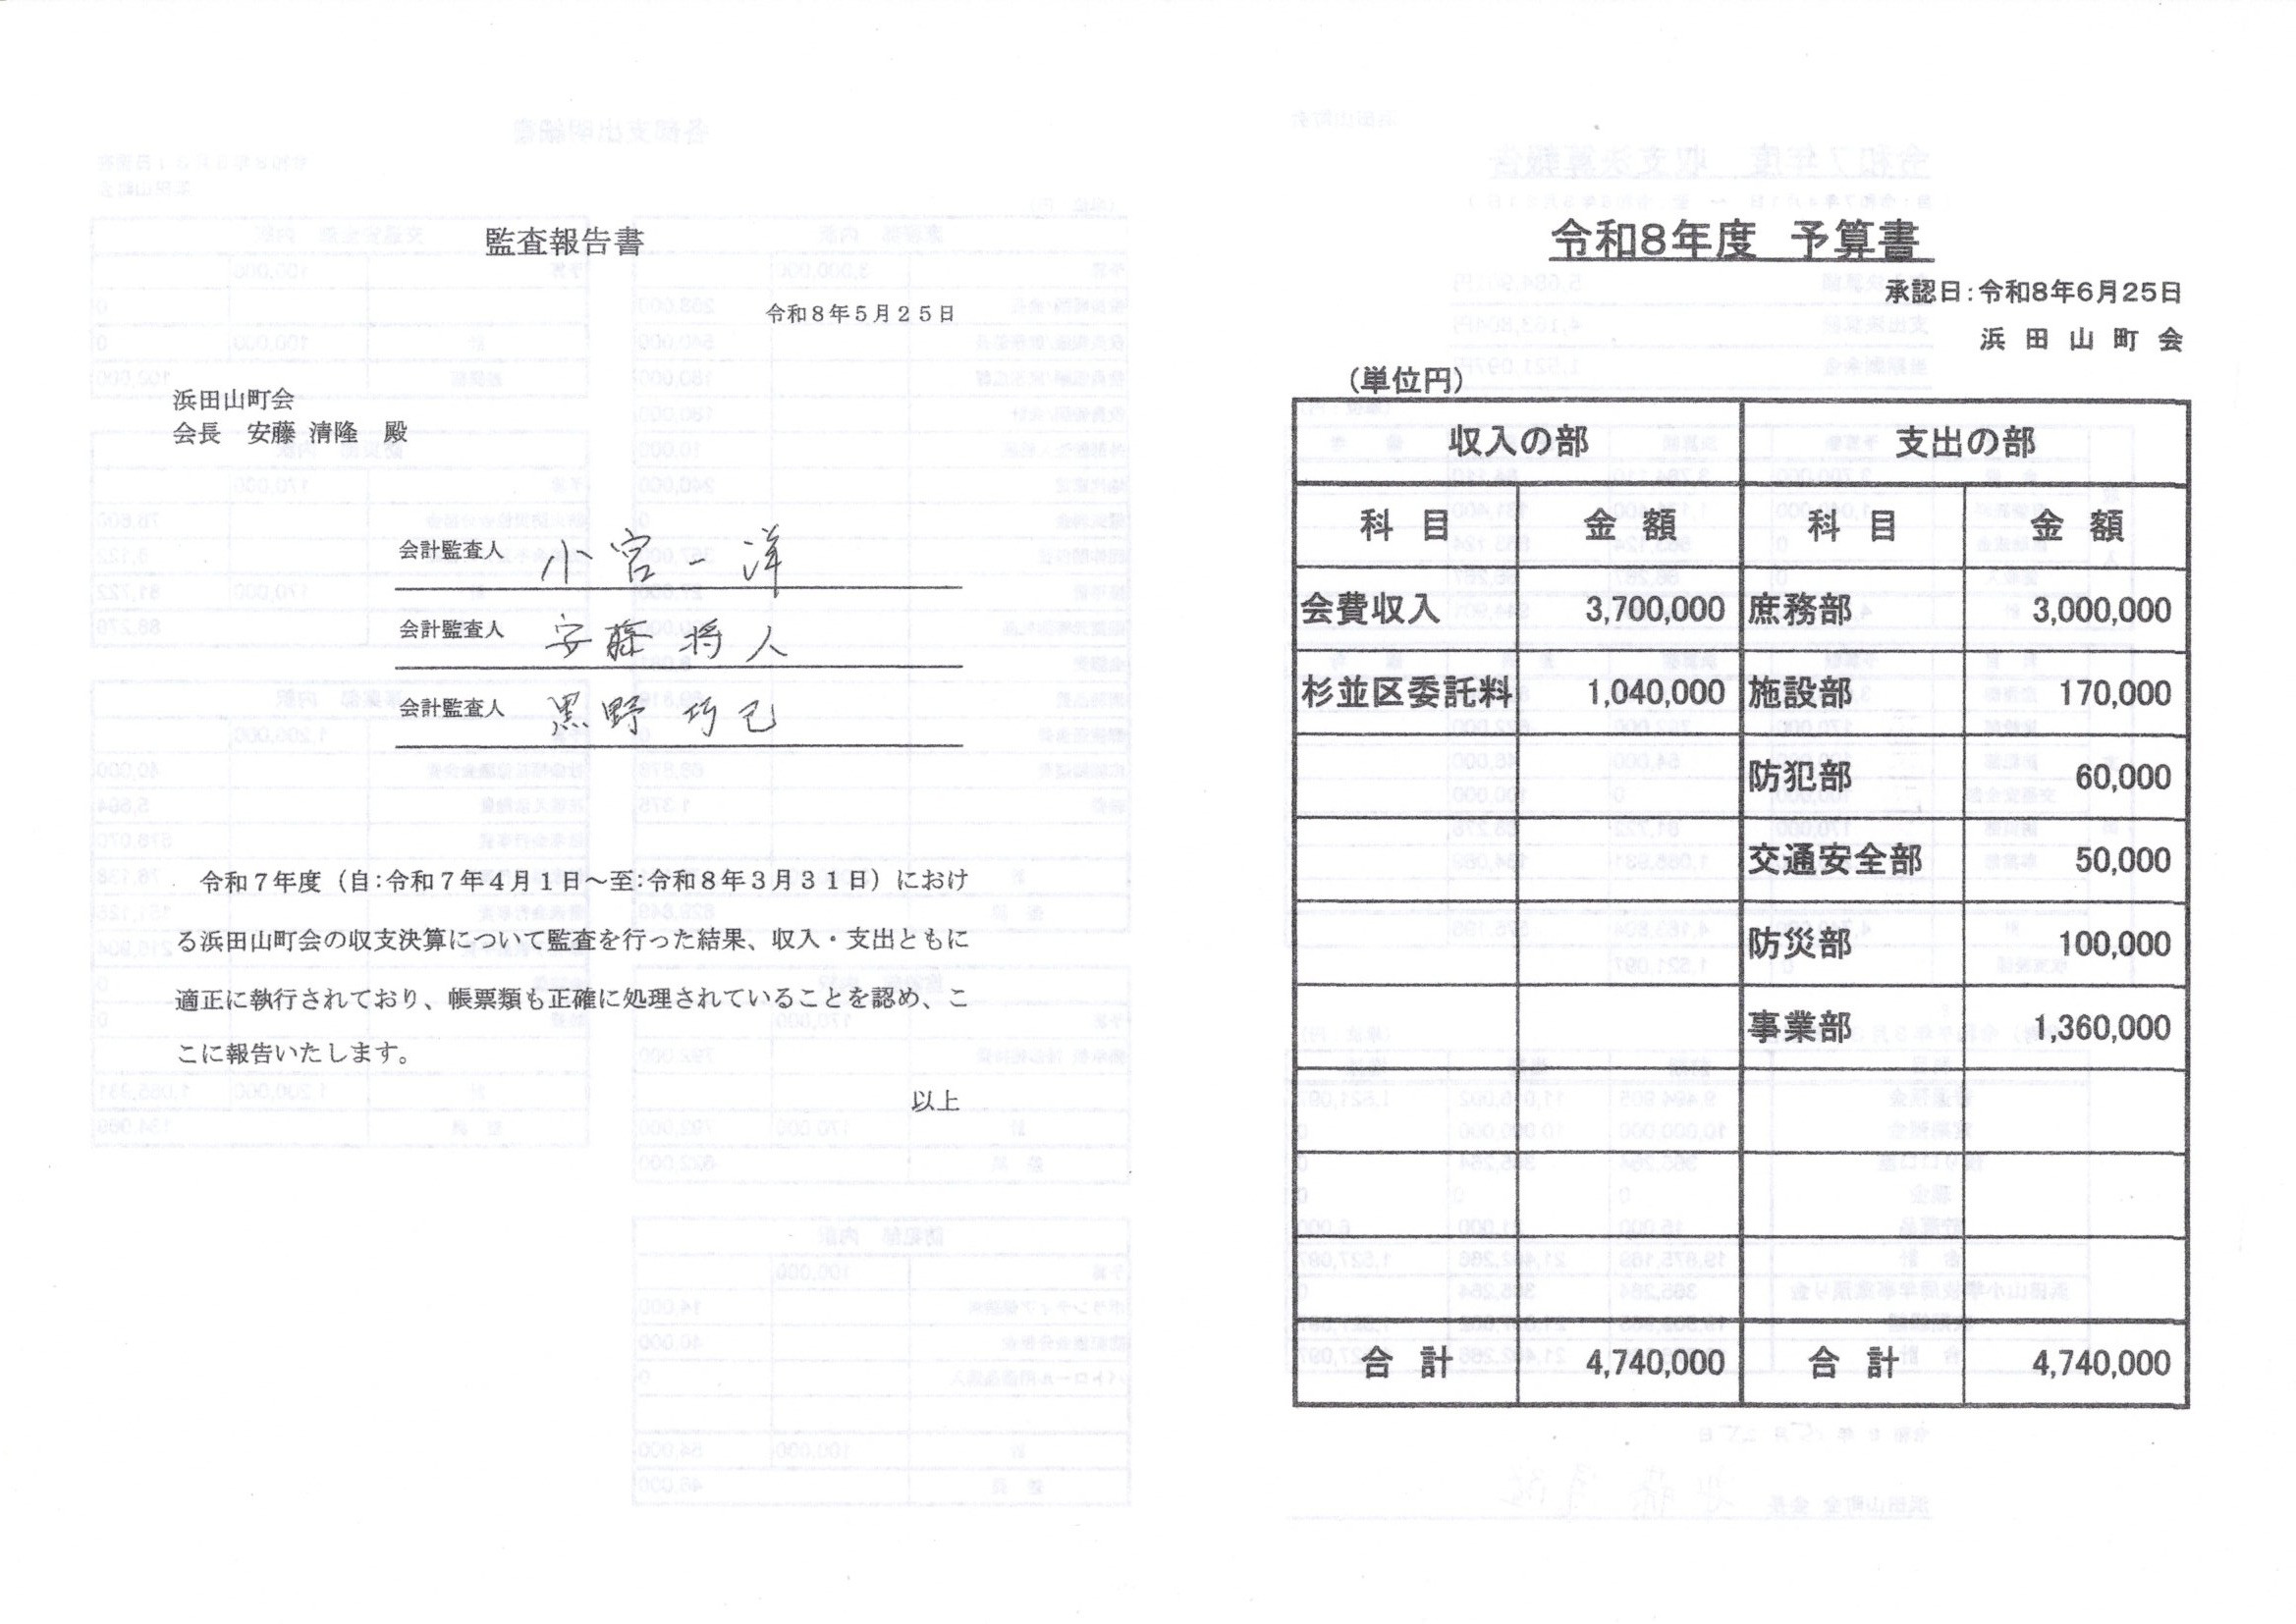 監査報告書
令和８年５月２５日
浜田山町会
会長　安藤 清隆　殿
会計監査人　小宮一洋
会計監査人　安藤 将人
会計監査人　黒野 巧己
令和７年度（自:令和７年４月１日～至:令和８年３月３１日）におけ
る浜田山町会の収支決算について監査を行った結果、収入・支出ともに
適正に執行されており、帳票類も正確に処理されていることを認め、こ
こに報告いたします。
以上
令和8年度　予算書
承認日:令和8年6月25日
浜 田 山 町 会
（単位円）
収入の部　支出の部
科　目　金　額　科　目　金　額
会費収入　3,700,000　庶務部　3,000,000
杉並区委託料　1,040,000　施設部　170,000
防犯部　60,000
交通安全部　50,000
防災部　100,000
事業部　1,360,000
合　計　4,740,000　合　計　4,740,000